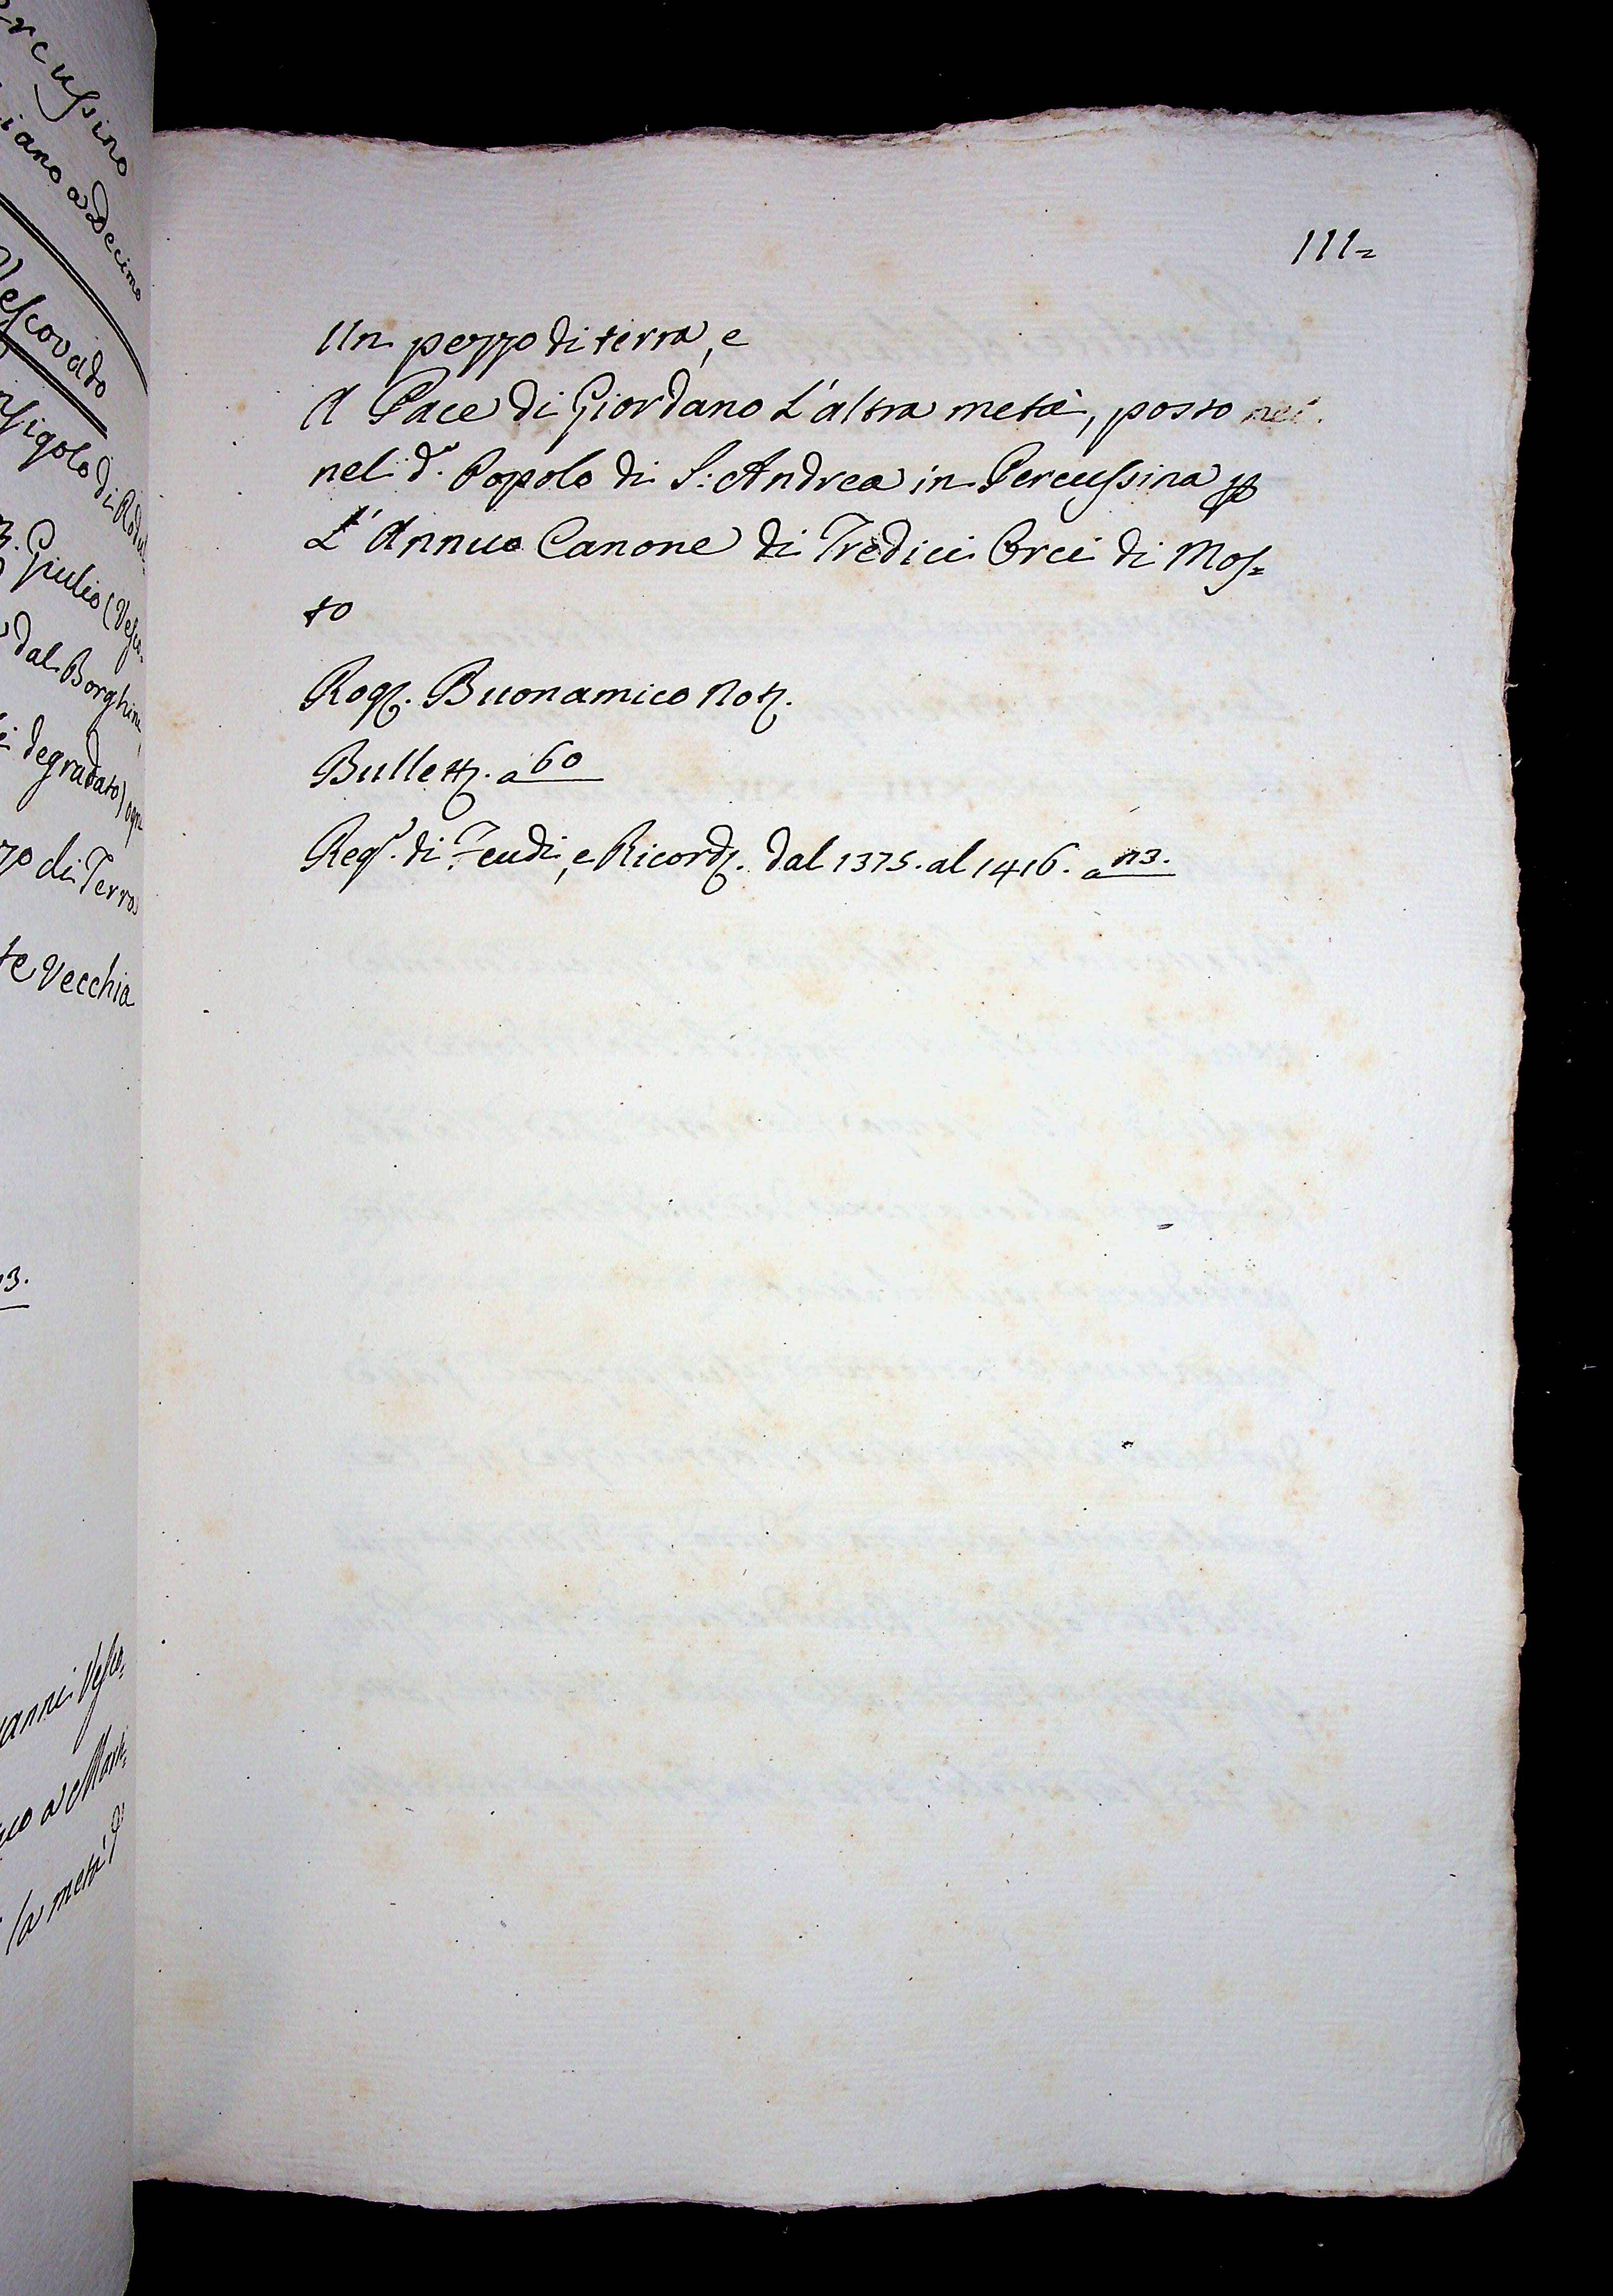 ercussino
iano a Decimo
Vescovado
nsigolo di Rodol-
3. Giulio (Vesco-
dal Borghini
degradato) ogn
zo di Terra
te Vecchia
13.
anni Vesco-
co a Mart-
la metà d
111=
Un pezzo di terra, e
A Pace di Giordano L'altra metà, posto nel
nel d.º Popolo di S: Andrea in Percussina p
L'Annuo Canone di Tredici Orci di Mos=
to
Rog. Buonamico Not.
Bullett. a 60
Reg.º di Feudi, e Ricord. dal 1375. al 1416. a 113.